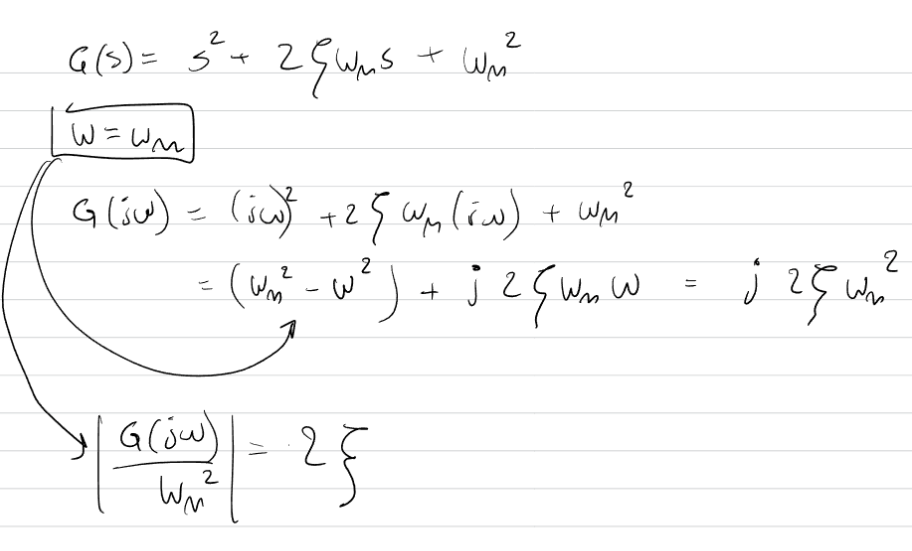 G(s) = s² + 2ζωₙs + ωₙ²
ω = ωₙ
G(jω) = (jω)² + 2ζωₙ(jω) + ωₙ²
= (ωₙ² - ω²) + j2ζωₙω = j2ζωₙ²
|G(jω)/ωₙ²| = 2ξ